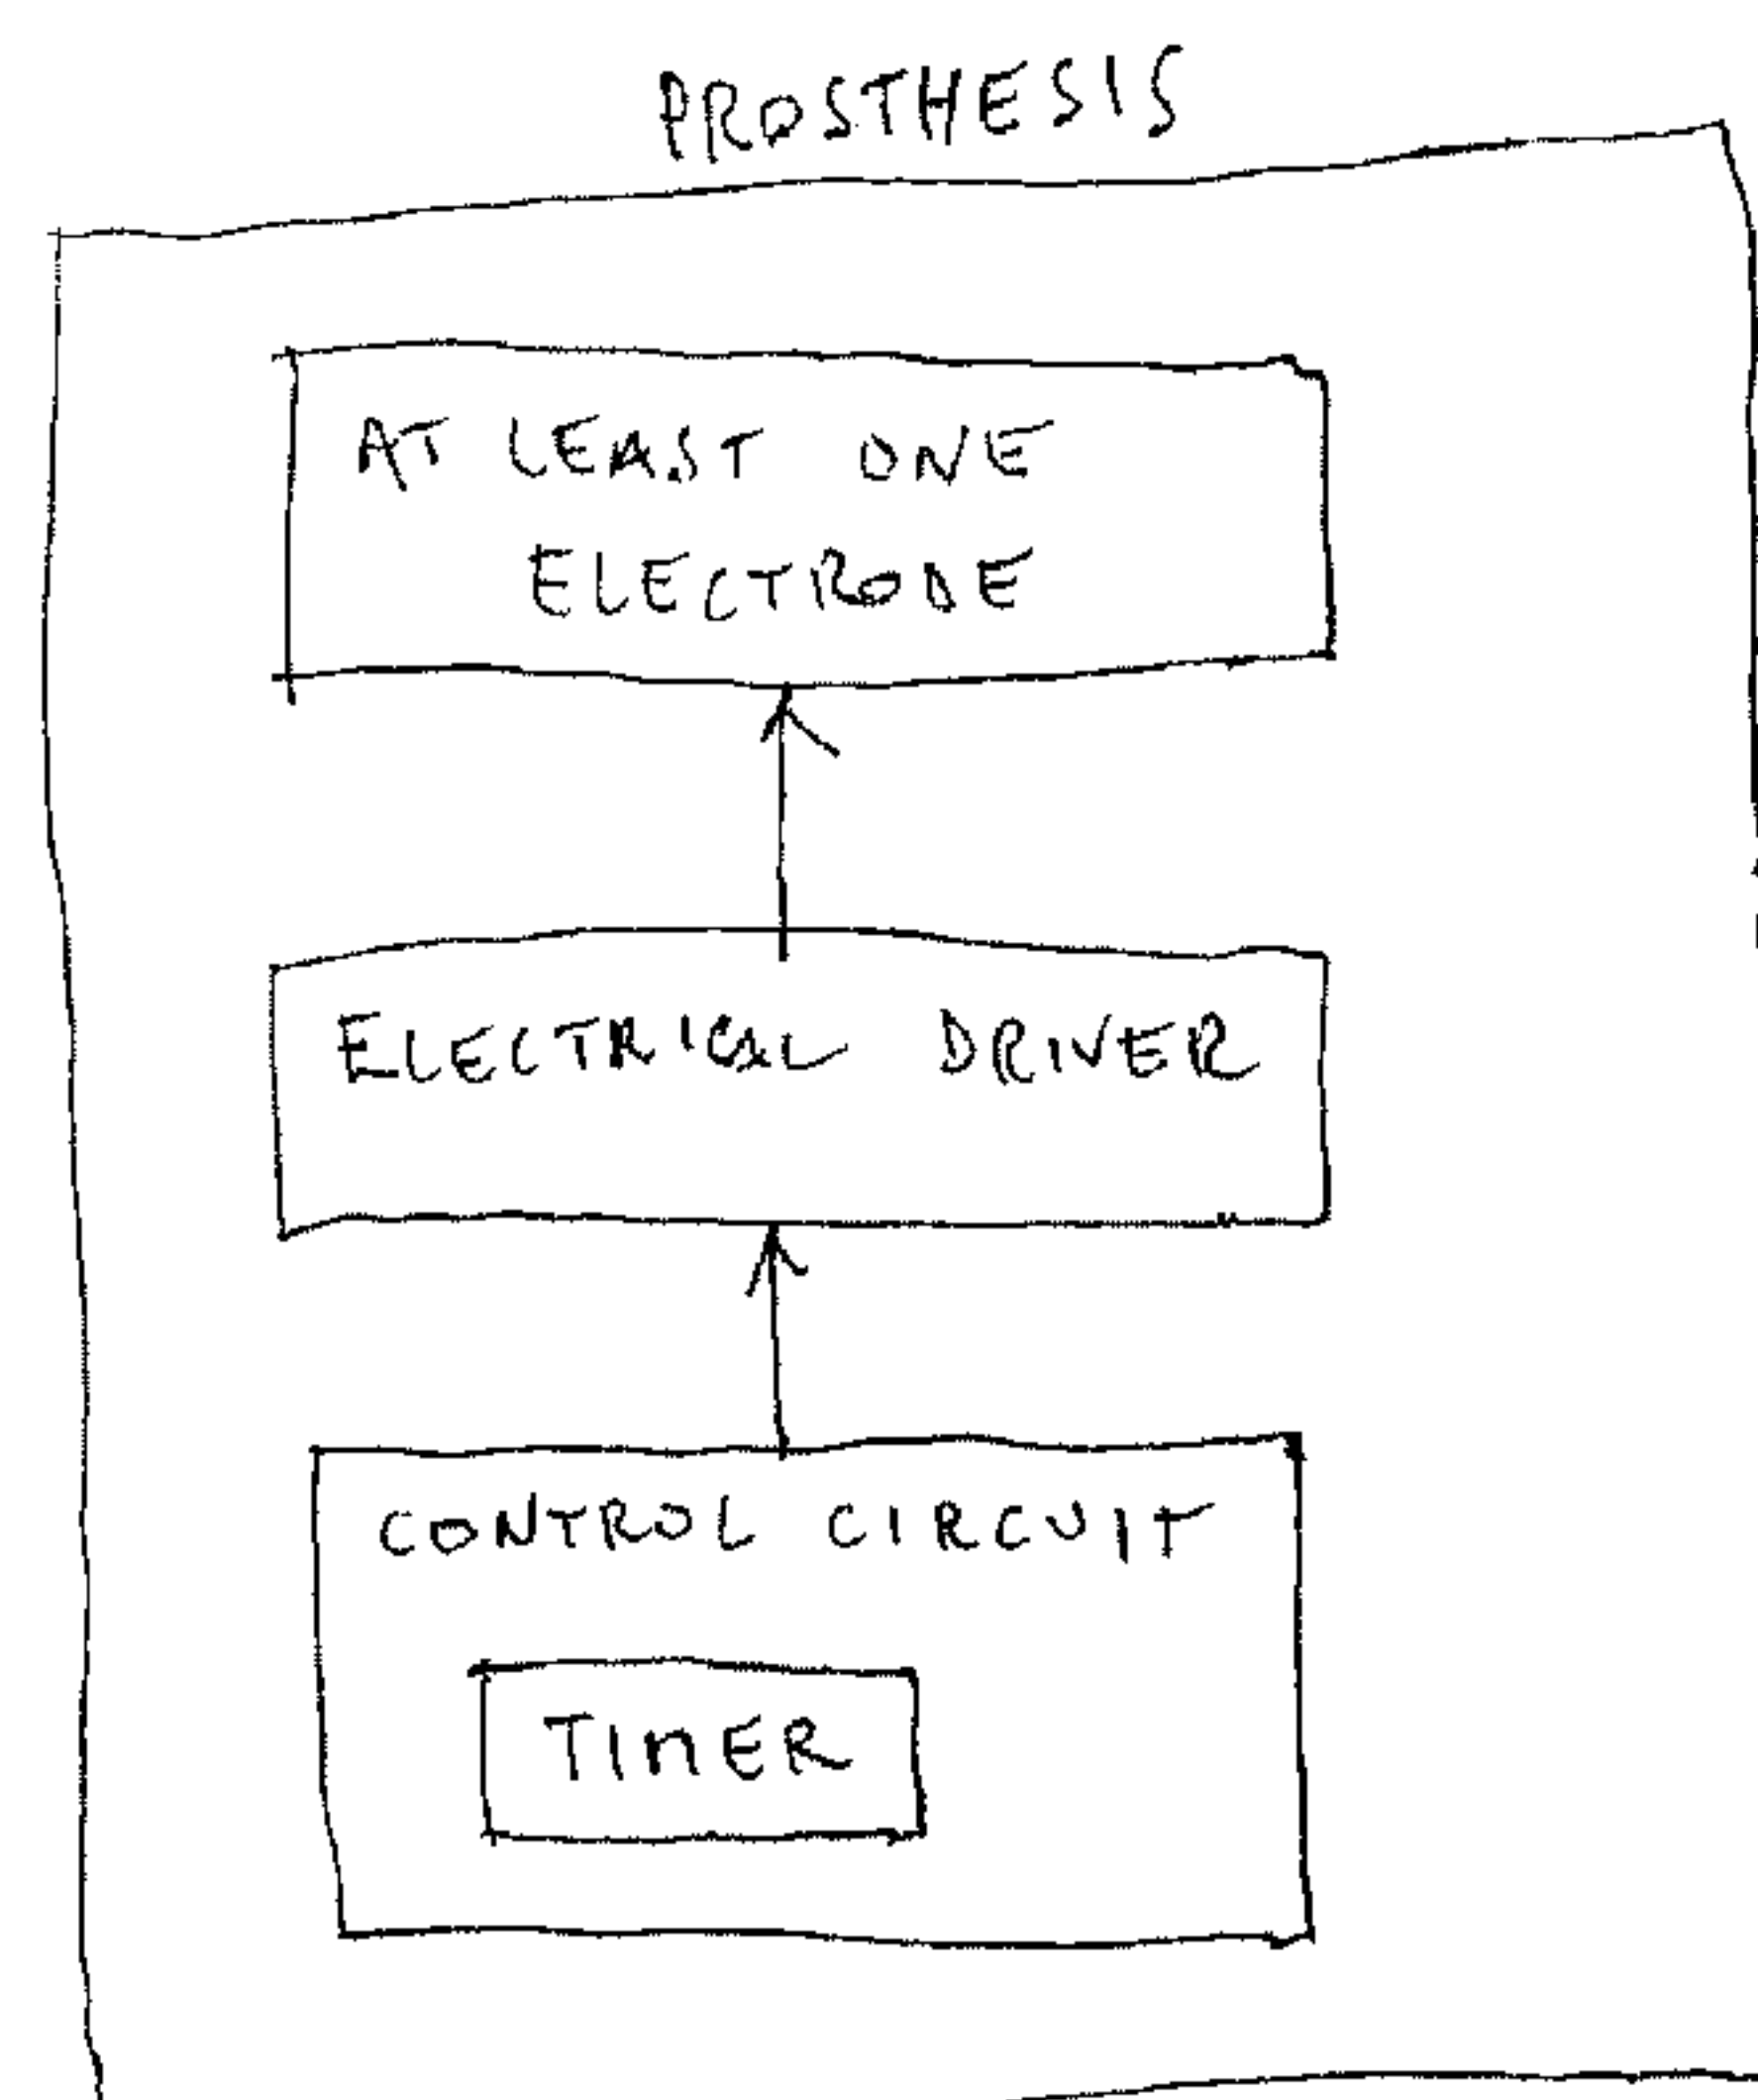 PROSTHESIS
AT LEAST ONE
ELECTRODE
ELECTRICAL DRIVER
CONTROL CIRCUIT
TIMER